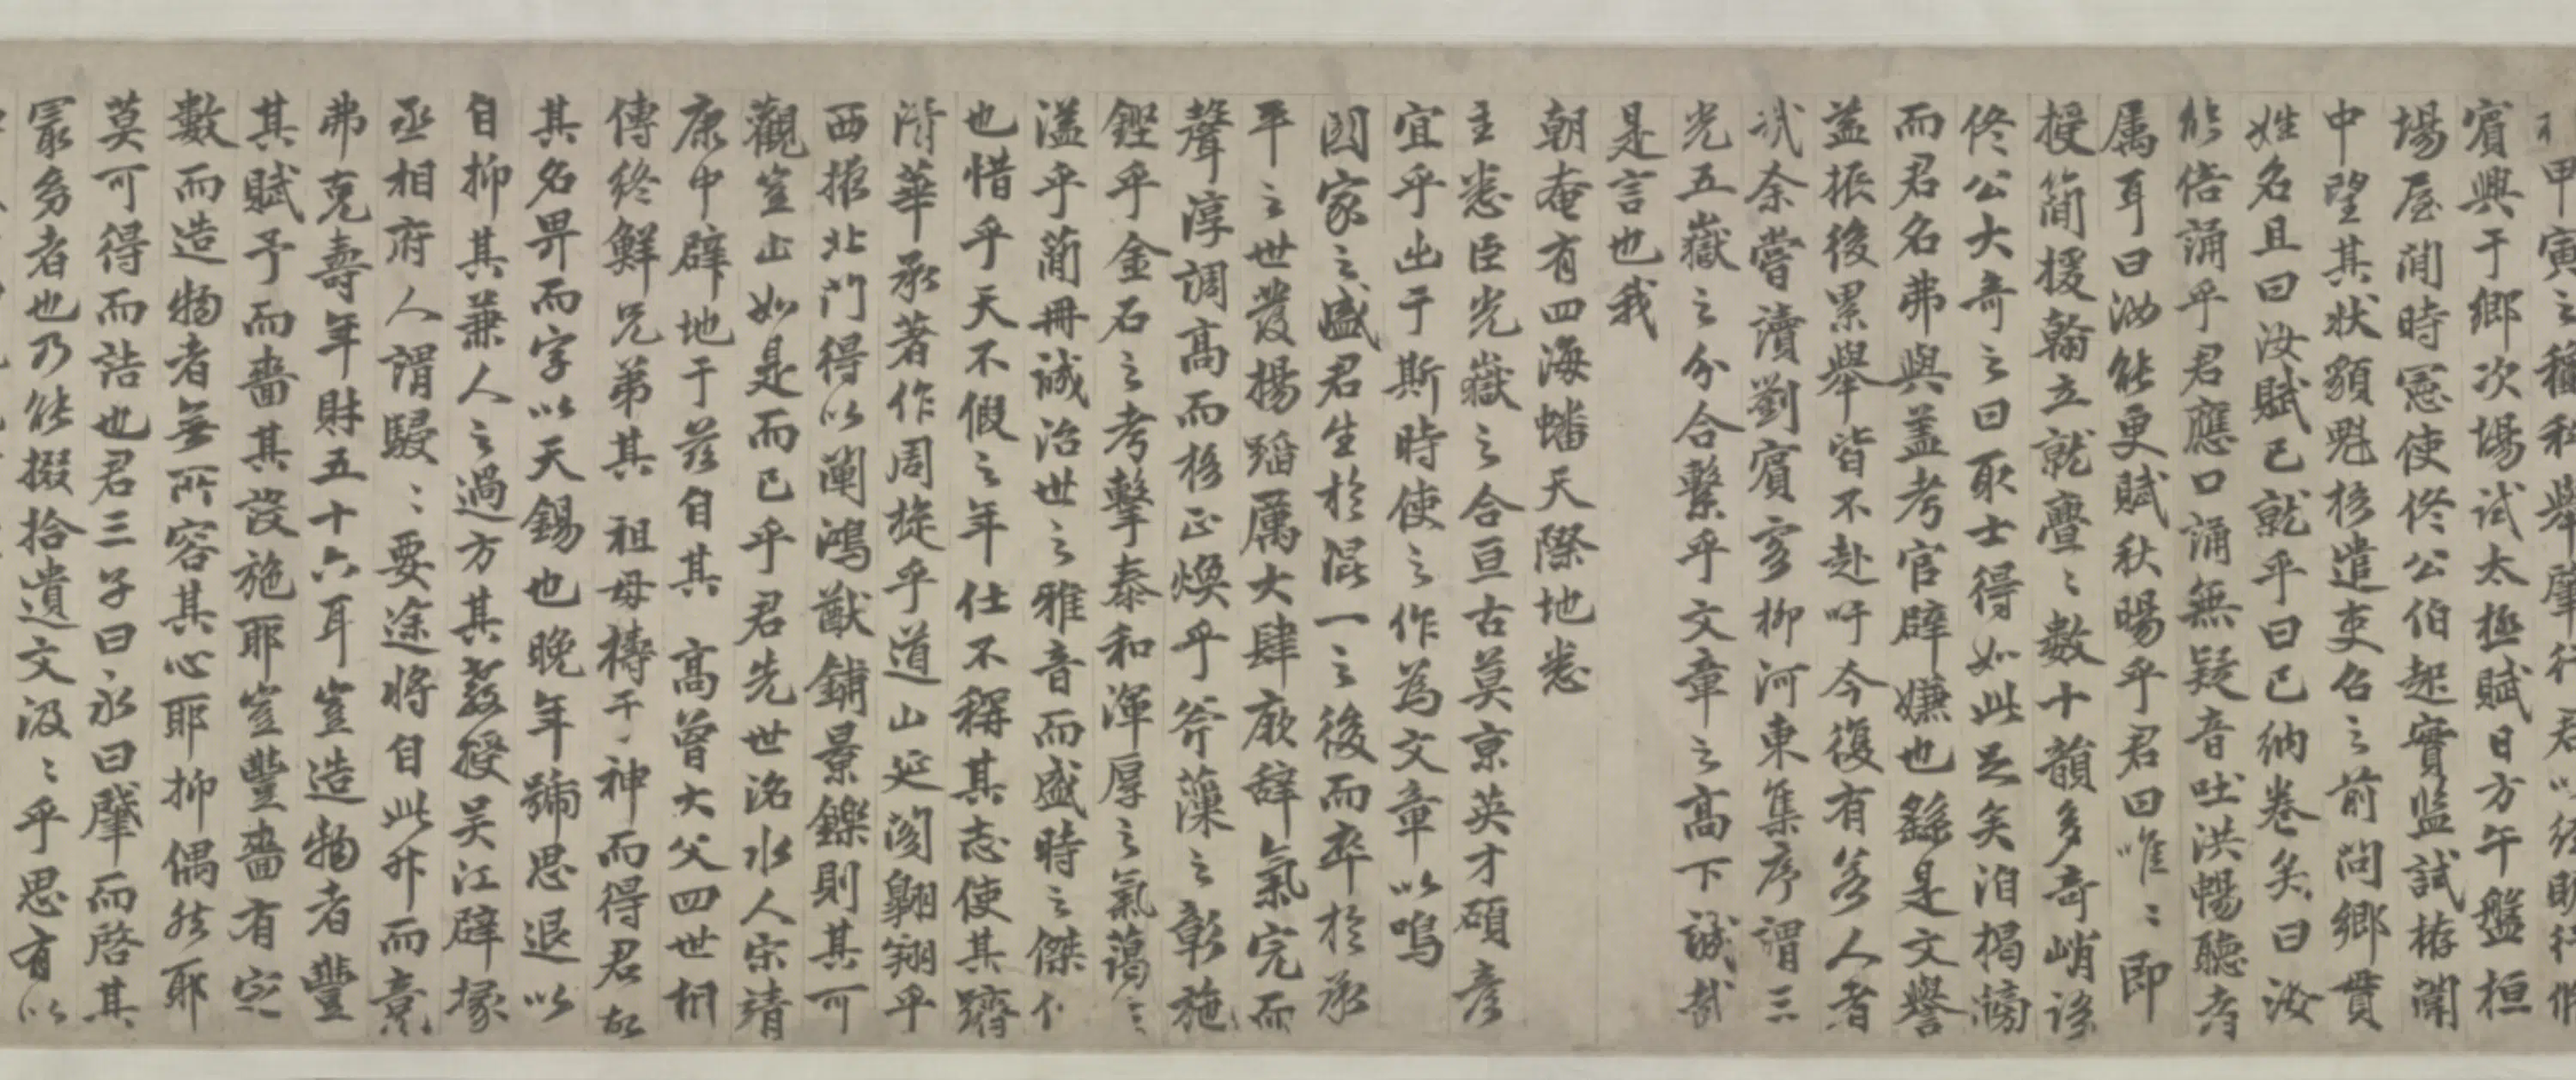 甲寅之種科舉肇行君以經明行脩
賓興于鄉次場試太極賦日方午盤桓
場屋間時憲使佟公伯起實監試栫闈
中望其狀貌魁梧遣吏召之前問鄉貫
姓名且曰汝賦已就乎曰已納卷矣曰汝
能倍誦乎君應口誦無疑音吐洪暢聽者
属耳曰汝能更賦秋暘乎君曰唯〻即
授簡援翰立就亹〻數十韻多奇峭語
佟公大奇之曰取士得如此足矣洎揭牓
而君名弗與盖考官辟嫌也繇是文譽
益振後累舉皆不赴吁今復有若人者
哉余嘗讀劉賓客柳河東集序謂三
光五嶽之分合繫乎文章之高下誠哉
是言也我
朝奄有四海蟠天際地悉
主悉臣光嶽之合亘古莫京英才碩彥
宜乎出于斯時使之作為文章以鳴
國家之盛君生於混一之後而卒於承
平之世發揚蹈厲大肆厥辞氣完而
聲淳調高而格正煥乎斧藻之彰施
鏗乎金石之考擊泰和渾厚之氣藹〻
溢乎蕳冊誠治世之雅音而盛時之傑作
也惜乎天不假之年仕不稱其志使其躋
清華承著作周旋乎道山延閣翱翔乎
西掖北門得以闡鴻猷鋪景鑠則其可
觀豈止如是而已乎君先世洺水人宋靖
康中辟地于茲自其 高曾大父四世相
傳終鮮兄弟其 祖母禱于神而得君故
其名畀而字以天錫也晚年號思退以
自抑其兼人之過方其教授吴江辟掾
丞相府人謂駸〻要途將自此升而竟
弗克壽年財五十六耳豈造物者豐
其賦予而嗇其設施耶豈豐嗇有定
數而造物者無所容其心耶抑偶然耶
莫可得而詰也君三子曰永曰肇而啓其
最多者也乃能掇拾遺文汲〻乎思有以